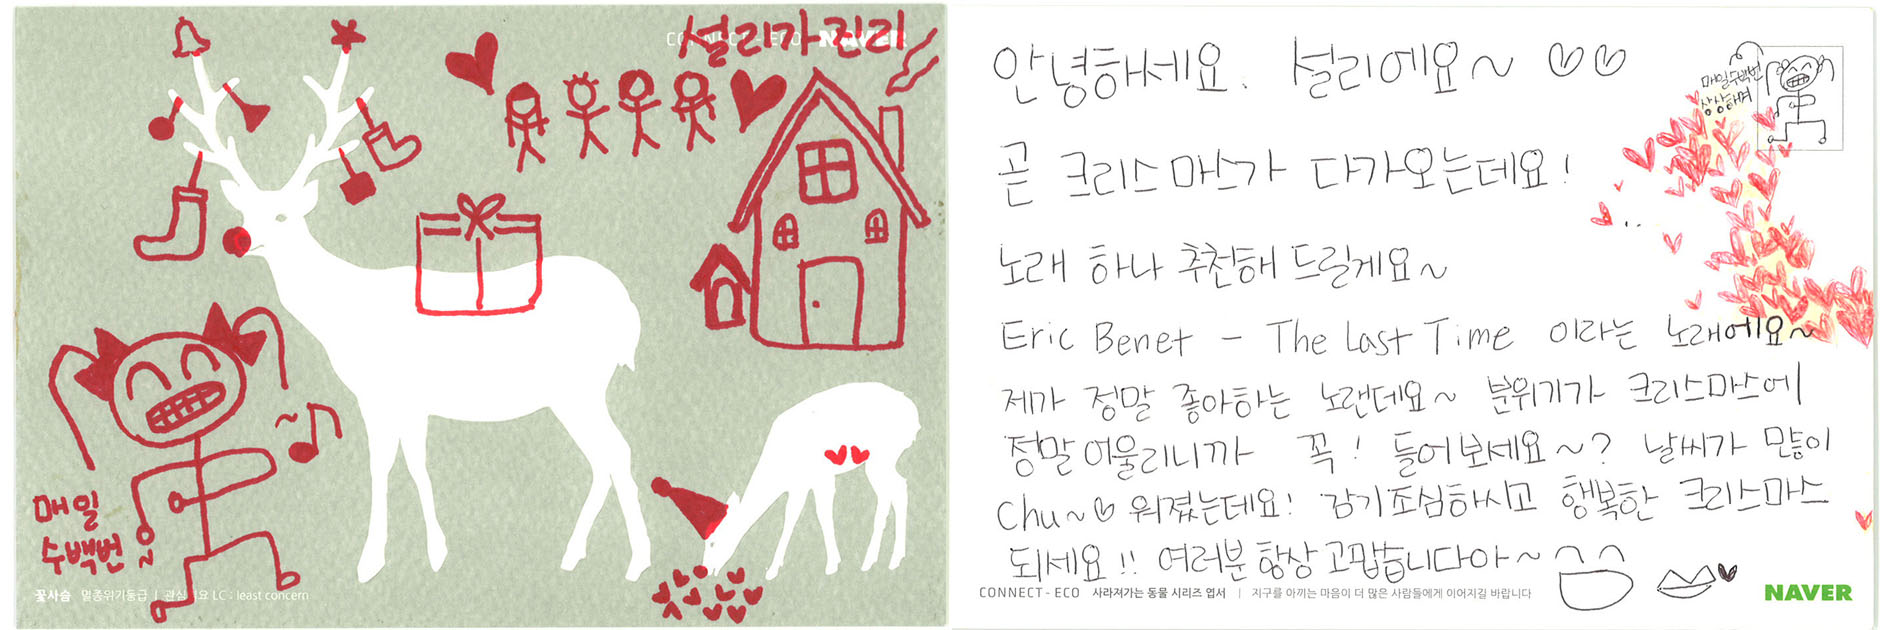 설리가 그린
CONNECT-ECO NAVER
매일
수백번
꽃사슴 멸종위기등급 | 관심 필요 LC : least concern
안녕하세요. 설리에요~ ♡♡
매일수백번
상상해며
곧 크리스마스가 다가오는데요!
노래 하나 추천해 드릴게요~
Eric Benet - The Last Time 이라는 노래에요~
제가 정말 좋아하는 노랜데요~ 분위기가 크리스마스에
정말 어울리니까 꼭! 들어보세요~? 날씨가 많이
Chu~♡ 워졌는데요! 감기조심하시고 행복한 크리스마스
되세요!! 여러분 항상 고맙습니다아~
CONNECT-ECO 사라져가는 동물 시리즈 엽서 | 지구를 아끼는 마음이 더 많은 사람들에게 이어지길 바랍니다
NAVER